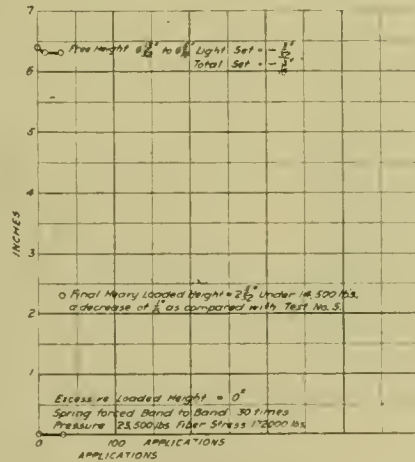 7
Free Height to Light Set = -
Total Set = -
6
5
4
INCHES
3
Final Heavy Loaded Height = 2 Under 14,500 lbs,
a decrease of as compared with Test No. 5.
2
1
Excessive Loaded Height = 0"
Spring forced Band to Band 30 times
Pressure 23,500 lbs Fiber Stress 172000 lbs
0
0 100 APPLICATIONS
APPLICATIONS